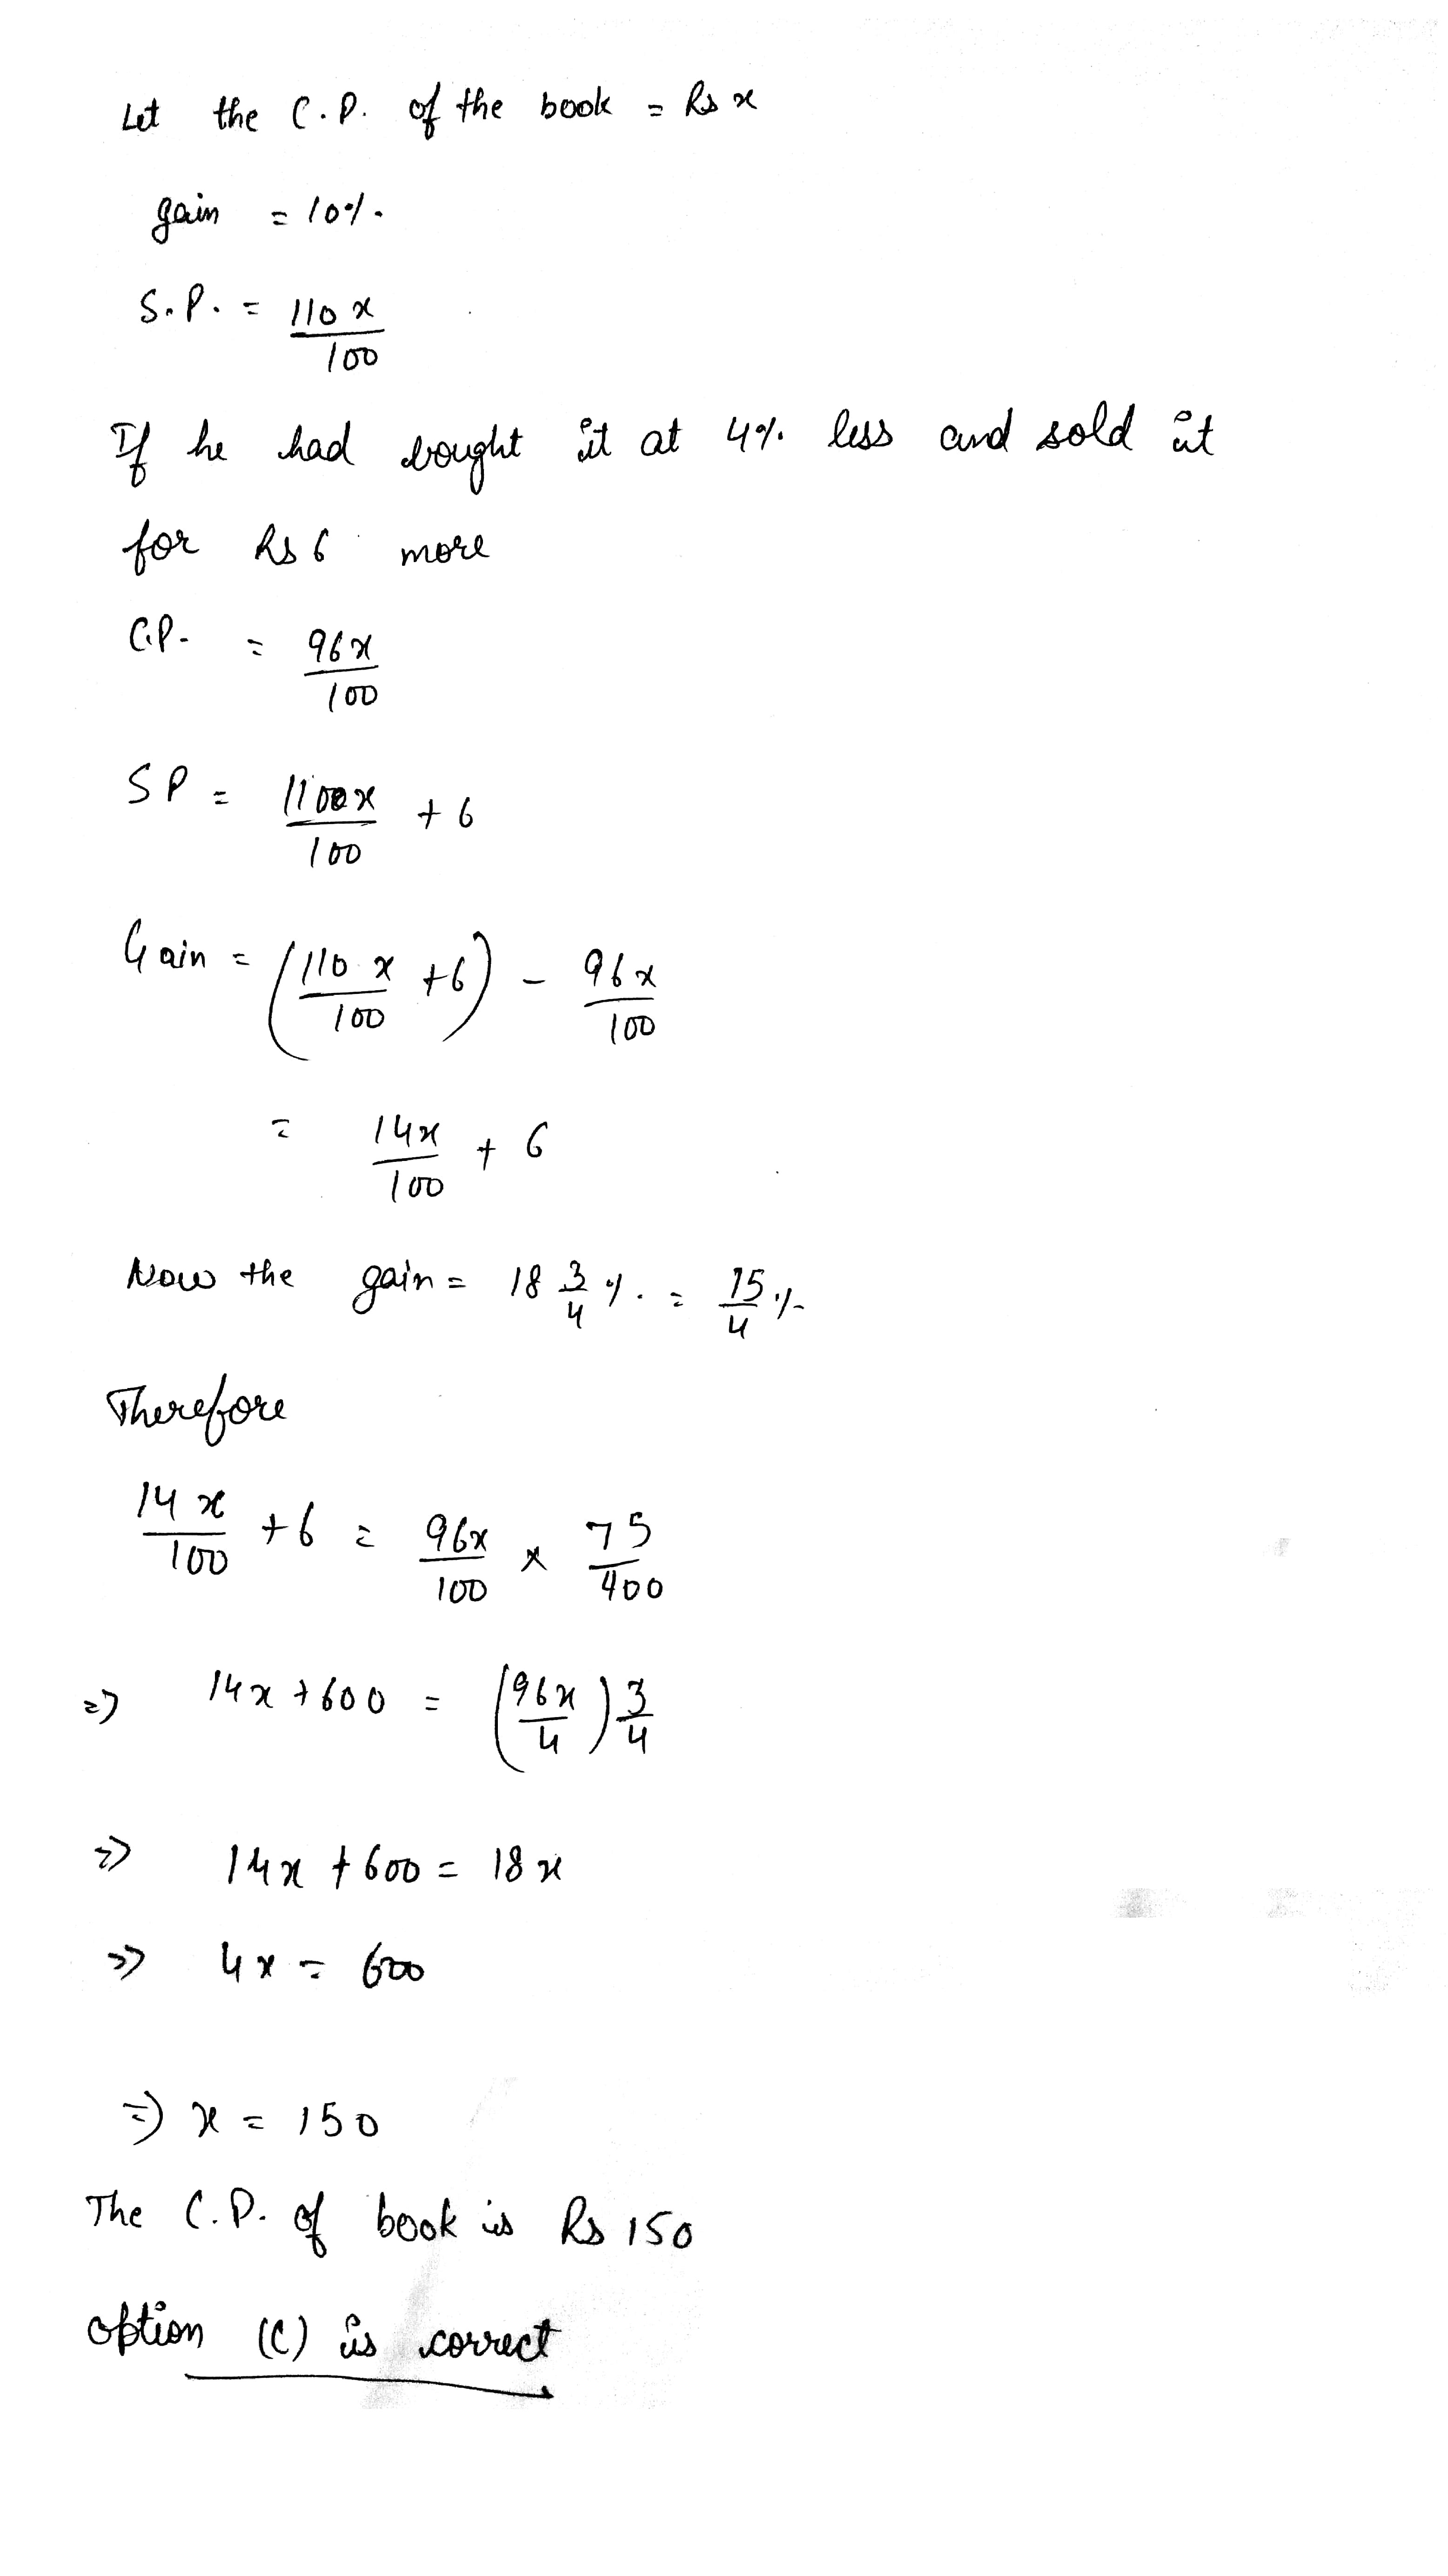 Let the C.P. of the book = Rs x
gain = 10%.
S.P. = 110x/100
If he had bought it at 4% less and sold it
for Rs 6 more
C.P. = 96x/100
SP = 1100x/100 + 6
Gain = (110x/100 + 6) - 96x/100
= 14x/100 + 6
Now the gain = 18 3/4 %. = 75/4 %
Therefore
14x/100 + 6 = 96x/100 × 75/400
=> 14x + 600 = (96x/4) 3/4
=> 14x + 600 = 18x
=> 4x = 600
=> x = 150
The C.P. of book is Rs 150
option (C) is correct